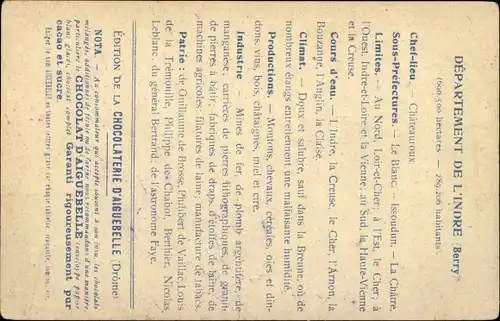 DÉPARTEMENT DE L'INDRE (Berry)
(690.509 hectares — 289.206 habitants)
Chef-lieu. — Châteauroux.
Sous-Préfectures. — Le Blanc. — Issoudun. — La Châtre.
Limites. — Au Nord, Loir-et-Cher; à l'Est, le Cher; à
l'Ouest, Indre-et-Loire et la Vienne; au Sud, la Haute-Vienne
et la Creuse.
Cours d'eau. — L'Indre, la Creuse, le Cher, l'Arnon, la
Bouzanne, l'Anglin, la Claise.
Climat. — Doux et salubre, sauf dans la Brenne, où de
nombreux étangs entretiennent une malfaisante humidité.
Productions. — Moutons, chevaux, céréales, oies et din-
dons, vins, bois, châtaignes, miel et cire.
Industrie — Mines de fer, de plomb argentifère, de
manganèse; carrières de pierres lithographiques, de granit,
de pierres à bâtir, fabriques de draps, d'étoffes de laine, de
machines agricoles; filatures de laine; manufacture de tabacs.
Patrie: de Guillaume de Brosse, Philibert de Vaillac, Louis
de la Trémouille, Philippe des-Chabot, Berthier, Nicolas
Leblanc, du général Bertrand, de l'astronome Faye.
ÉDITION DE LA CHOCOLATERIE D'AIGUEBELLE (Drôme)
NOTA. — Au consommateur qui accepte souvent à son insu, les chocolats
mélangés, additionnés de fécule ou de farine, nous recommandons d'une manière
particulière le CHOCOLAT D'AIGUEBELLE
cacao et sucre. Garanti rigoureusement pur